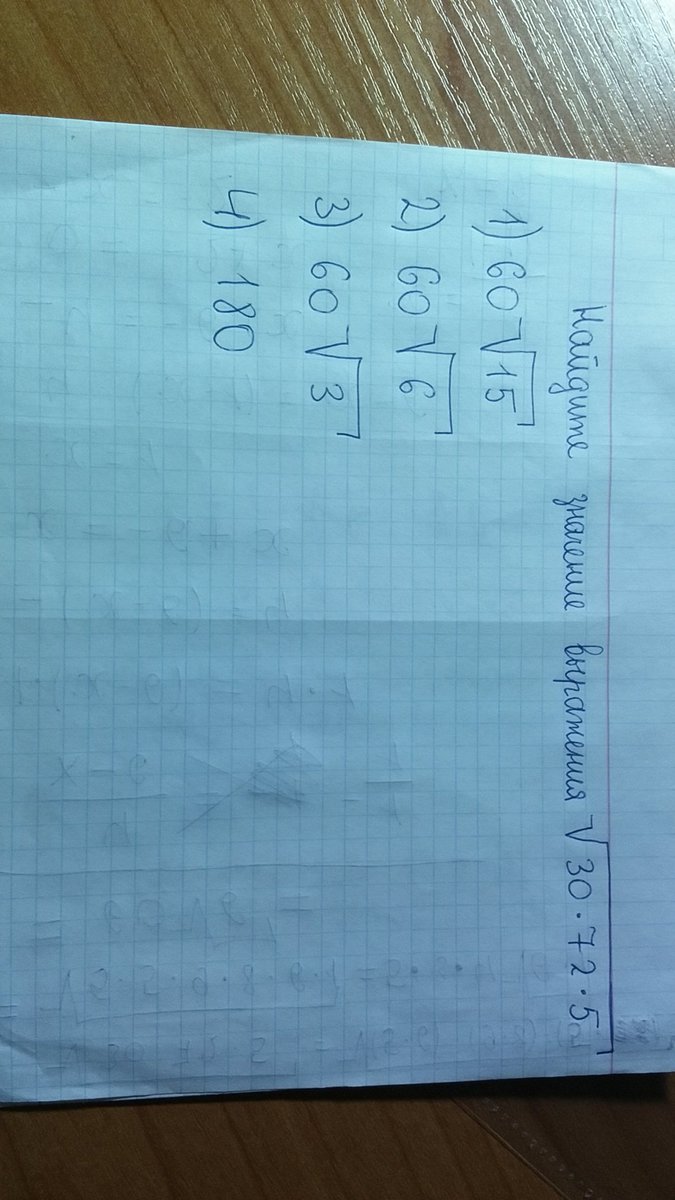 Найдите значение выражения √30·72·5
1) 60√15
2) 60√6
3) 60√3
4) 180